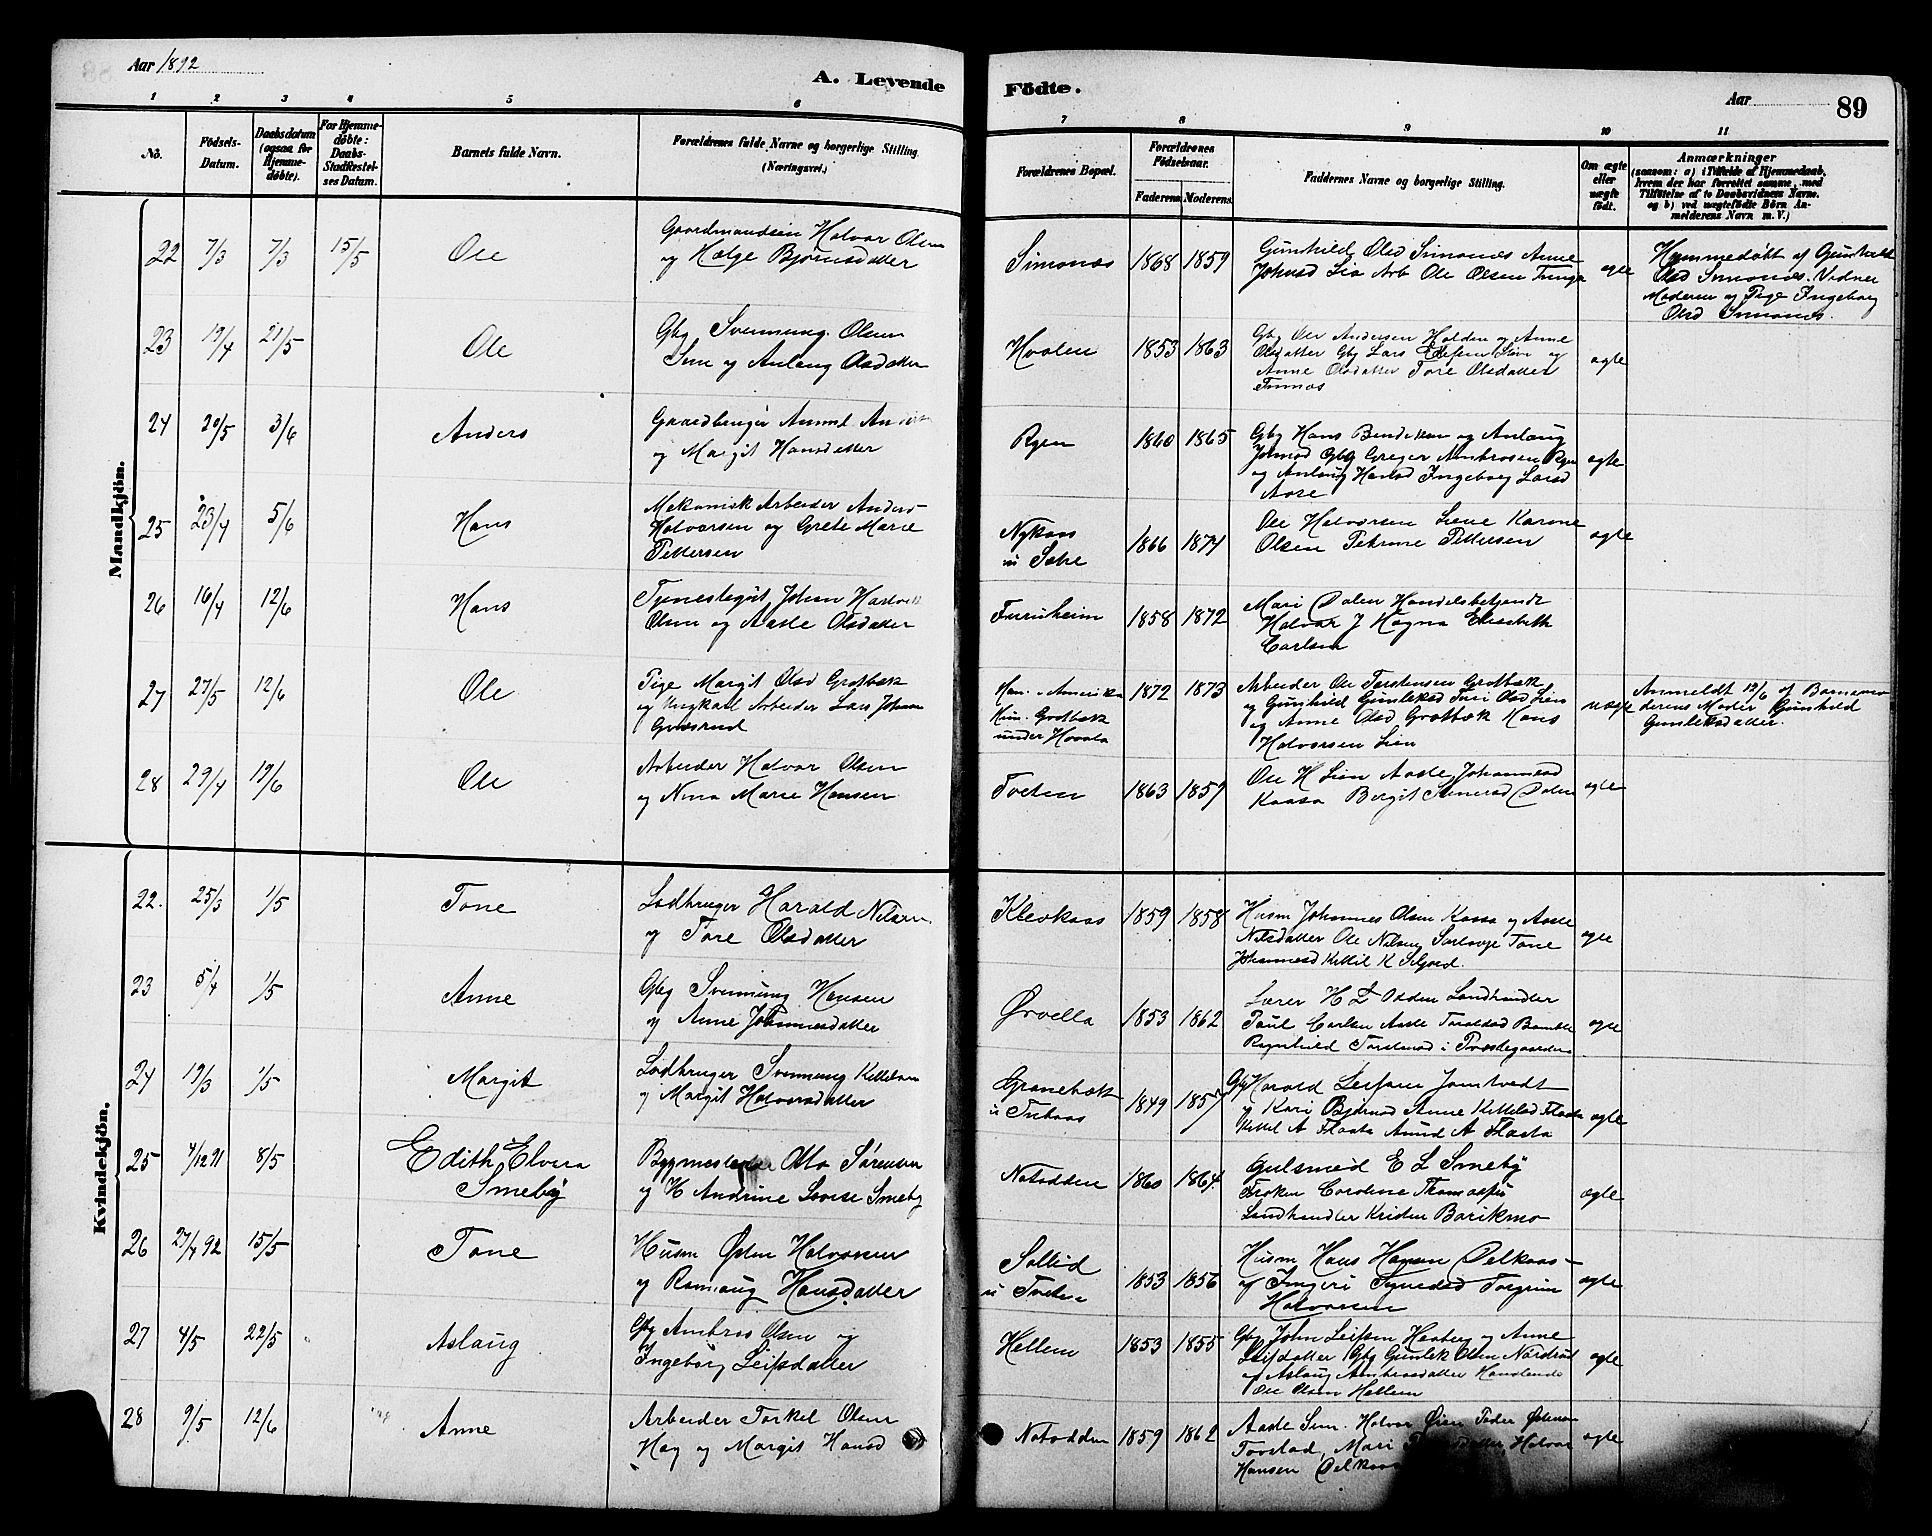 Aar 1892
A. Levende
Födte.
Aar
89
1 2 3 4 5 6 7 8 9 10 11
No.
Födsels-
Datum.
Daabsdatum
(ogsaa for
Hjemme-
döbte).
For Hjemme-
döbte:
Daabs-
Stadfæstel-
ses Datum.
Barnets fulde Navn.
Forældrenes fulde Navne og borgerlige Stilling.
(Næringsvei.)
Forældrenes Bopæl.
Forældrenes
Födselsaar.
Faderens Moderens
Faddernes Navne og borgerlige Stilling.
Om ægte
eller
uægte
födt.
Anmærkninger
(saasom: a) i Tilfælde af Hjemmedaab,
hvem der har forrettet samme, med
Tilföielse af to Daabsvidners Navne.
og b) ved uægtefödte Börn An-
melderens Navn m. V.)
Mandkjön.
22 7/3 7/3 15/5 Ole
Gaardmandsen Halvor Olsen
og Helge Bjørnsdatter
Simones 1868 1859
Gunhild Olsd Simones Anne
Johnsd Lia Arb Ole Olsen Tinge
ægte
Hjemmedøbt af Gunhild
Olsd Simones. Vidner
Moderen og Pige Ingeborg
Olsd Simones.
23 19/4 21/5 Ole
Gbg Svennung Olsen
Sem og Anlaug Olsdatter
Hvalen 1853 1863
Gbg Ole Andersen Holden og Anne
Olsdatter Gbg Lars Sem og
Anne Olsdatter Tore Olsdatter
Tinnes
ægte
24 20/5 3/6 Anders
Gaardbruger Anund
og Margit Hansdatter
Ryen 1860 1865
Gbg Hans Bendiksen og Anlaug
Johnsd Gbg Greger Ambrosen Ryen
og Anlaug Hansd Ingeborg Larsd
Aase
ægte
25 23/4 5/6 Hans
Mekanisk Arbeider Anders
Halvorsen og Grete Marie
Pettersen
Nykaas
u Sætre 1866 1874
Ole Halvorsen Lene Karine
Olsen Petrine Pettersen
ægte
26 16/4 12/6 Hans
Tjenestegut Johan
Olsen og Aaste Olsdatter
Furuheim 1858 1872
Mari Dalen Handelsbetjendt
Halvor J Høgna Elisabeth
Carlsen
27 27/5 12/6 Ole
Pige Margit Olsd Grotbæk
og Ungkarl Arbeider Lars Johnsen
Grøsrud
Han: Amerika
Hun: Grotbæk
under Hovala
1872 1873
Arbeider Ole Torstensen Grotbæk
og Gunhild Gunleksd Tori Olsd Lien
og Anne Olsd Grotbæk Hans
Halvorsen Lien
uægte
Anmeldt 12/6 af Barnemo
derens Moder Gunhild
Gunleksdatter.
28 29/4 19/6 Ole
Arbeider Halvor Olsen
og Nina Marie Hansen
Tveten 1863 1859
Ole H Lien Aaste Johannesd
Kaasa Bergit Dalen
ægte
Kvindekjön.
22. 25/3 1/5 Tone
Lodbruger Harald Nilsen
og Tore Olsdatter
Kleivkaas 1859 1858
Husm Johannes Olsen Kaasa og Aaste
Nilsdatter Ole Nilsen Tone
Johannesd Kittil K Seljord.
ægte
23 5/4 1/5 Anne
Gbg Svennung Hansen
og Anne Johannesdatter
Ørvella 1853 1862
Lærer H L Odden Landhandler
Paul Carlsen Aaste Taraldsd Bamble
Ragnhild Torstensd i Prestegaarden
ægte
24 19/3 1/5 Margit
Lodbruger Svennung Kittelsen
og Margit Halvorsdatter
Granebæk
u Tvekaas 1849 1857
Gbg Harald Leifsen Jamtvedt
og Kari Bjørnsd Anne Kittilsd Flaata
Kittil A Flaata Anund A Flaata
ægte
25 4/12 91 8/5 Edith Elvera
Smeby
Bygmester Otto Sørensen
og H Andrine Lovise Smeby
Notodden 1860 1864.
Gulsmed E L Smeby
Frøken Caroline Thomassen
Landhandler Kristen Borikmo
ægte
26 27/4 92 15/5 Tone
Husm Østen Halvorsen
og Ramaug Hansdatter
Sollid
u Tveten 1853 1856
Husm Hans Hansen Oelkaas
og Ingeri Torgrim
Halvorsen
ægte
27 4/5 22/5 Aslaug
Gbg Ambros Olsen og
Ingeborg Leifsdatter
Hellem 1853 1855
Gbg John Leifsen Haaberg og Anne
Leifsdatter Gbg Gunlek Olsen Nordrud
og Aslaug Ambrosdatter
Ole Olsen Hellem
ægte
28 9/5 12/6 Anne
Arbeider Torkel Olsen
Hag og Margit Hansd
Notodden 1859 1862
Aaste Sem. Halvor Øien
Torstad, Mari Halvor
Hansen Oelkaas
ægte